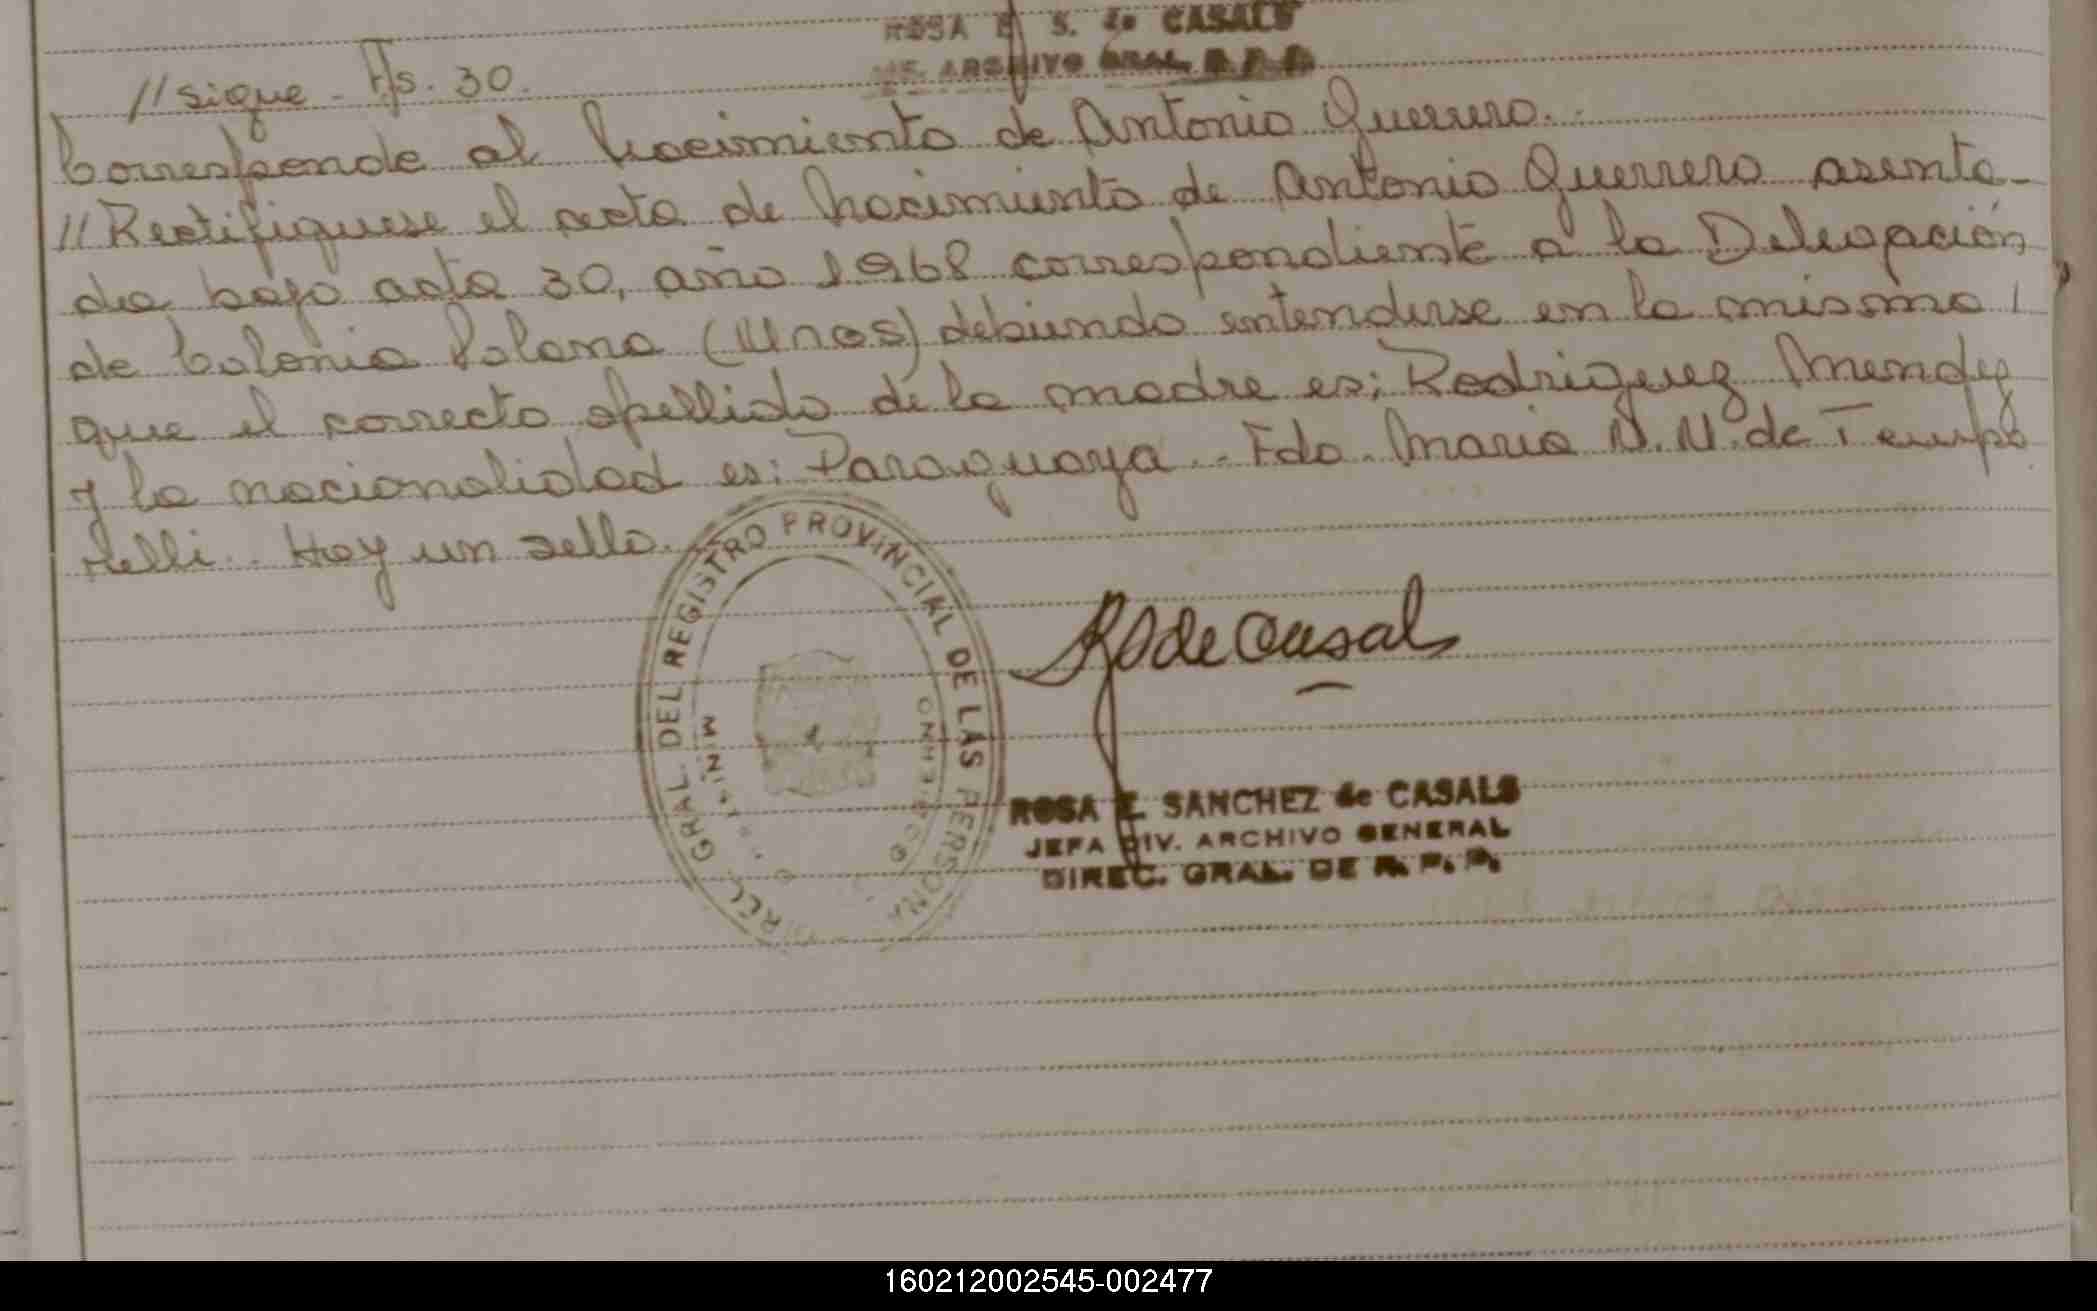 ROSA E. S. de CASALS
ARCHIVO GRAL. R. P. P.
//sigue - Fjs. 30.
Corresponde al Nacimiento de Antonio Guerrero.-
//Rectifiquese el acta de Nacimiento de Antonio Guerrero asenta-
da bajo acta 30, año 1.968 correspondiente a la Delegación
de Colonia Solano (Unos) debiendo entenderse en la misma
que el correcto apellido de la madre es: Rodriguez Mendez
y la nacionalidad es: Paraguaya.- Fdo. Maria N. N. de Tempo
relli.- Hay un sello.-
DIREC. GRAL. DEL REGISTRO PROVINCIAL DE LAS PERSONAS
GOBIERNO
R S de Casal
ROSA E. SANCHEZ de CASALS
JEFA DIV. ARCHIVO GENERAL
DIREC. GRAL. DE R. P. P.
160212002545-002477